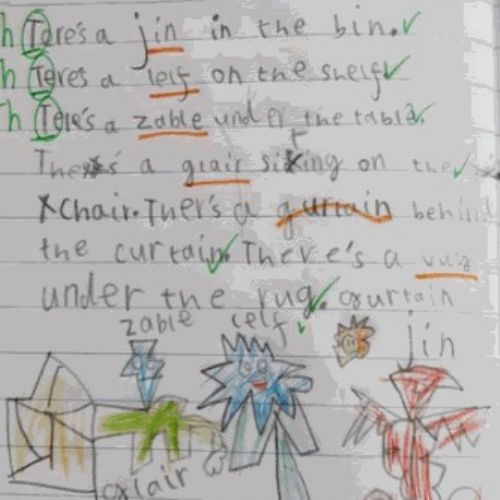 Th Teres a jin in the bin.
Th Teres a lelf on the shelf
Th Tere's a zable under the table.
There's a glair sitting on the
chair. Ther's a gurtain behind
the curtain. There's a vug
under the rug. gurtain
zable lelf jin
glair